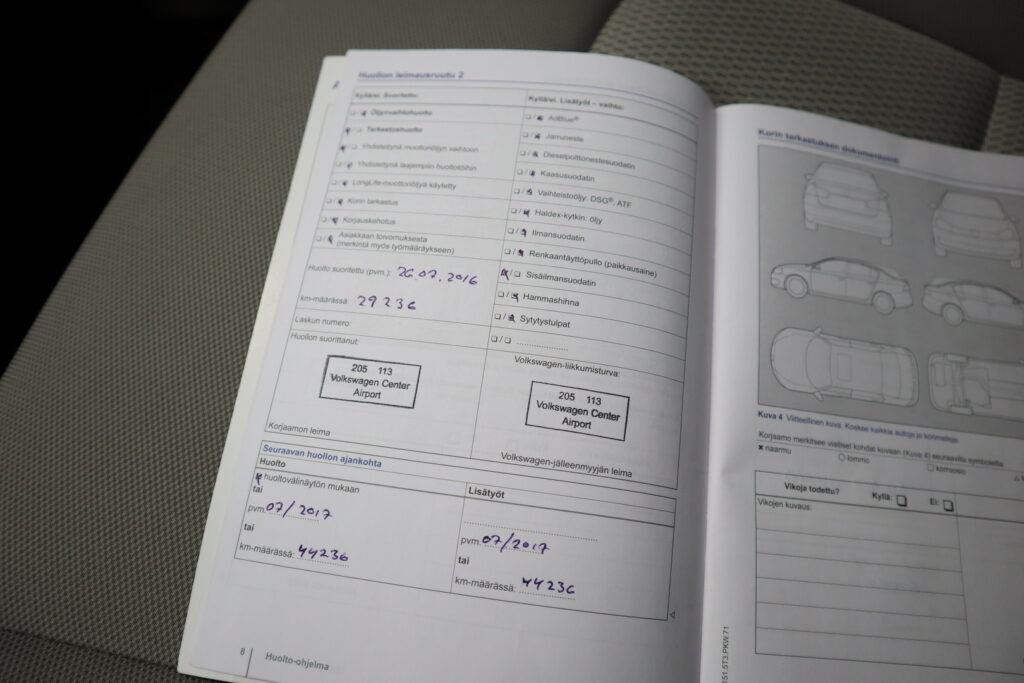 Huollon leimausruutu 2
Kyllä/ei. Suoritettu:
❑ / ❑ Öljynvaihtohuolto
❑ / ❑ Tarkastushuolto
❑ / ❑ Yhdistettynä moottoriöljyn vaihtoon
❑ / ❑ Yhdistettynä laajempiin huoltotöihin
❑ / ❑ LongLife-moottoriöljyä käytetty
❑ / ❑ Korin tarkastus
❑ / ❑ Korjauskehotus
❑ / ❑ Asiakkaan toivomuksesta
(merkintä myös työmääräykseen)
Huolto suoritettu (pvm.): 26.07.2016
km-määrässä: 29236
Laskun numero:
Huollon suorittanut:
205 113
Volkswagen Center
Airport
Korjaamon leima
Kyllä/ei. Lisätyöt – vaihto:
❑ / ❑ AdBlue®
❑ / ❑ Jarruneste
❑ / ❑ Dieselpolttonestesuodatin
❑ / ❑ Kaasusuodatin
❑ / ❑ Vaihteistoöljy: DSG®, ATF
❑ / ❑ Haldex-kytkin: öljy
❑ / ❑ Ilmansuodatin
❑ / ❑ Renkaantäyttöpullo (paikkausaine)
❑ / ❑ Sisäilmansuodatin
❑ / ❑ Hammashihna
❑ / ❑ Sytytystulpat
❑ / ❑ ....................
Volkswagen-liikkumisturva:
205 113
Volkswagen Center
Airport
Volkswagen-jälleenmyyjän leima
Seuraavan huollon ajankohta
Huolto
huoltovälinäytön mukaan
tai
pvm. 07/2017
tai
km-määrässä: 44236
Lisätyöt
pvm. 07/2017
tai
km-määrässä: 44236
8 Huolto-ohjelma
Korin tarkastuksen dokumentointi
Kuva 4 Viitteellinen kuva. Koskee kaikkia autoja ja korimalleja.
Korjaamo merkitsee vialliset kohdat kuvaan (Kuva 4) seuraavilla symboleilla:
✖ naarmu
○ lommo
□ korroosio
Vikoja todettu? Kyllä: ❑ Ei: ❑
Vikojen kuvaus:
151.5T3.PKW.71